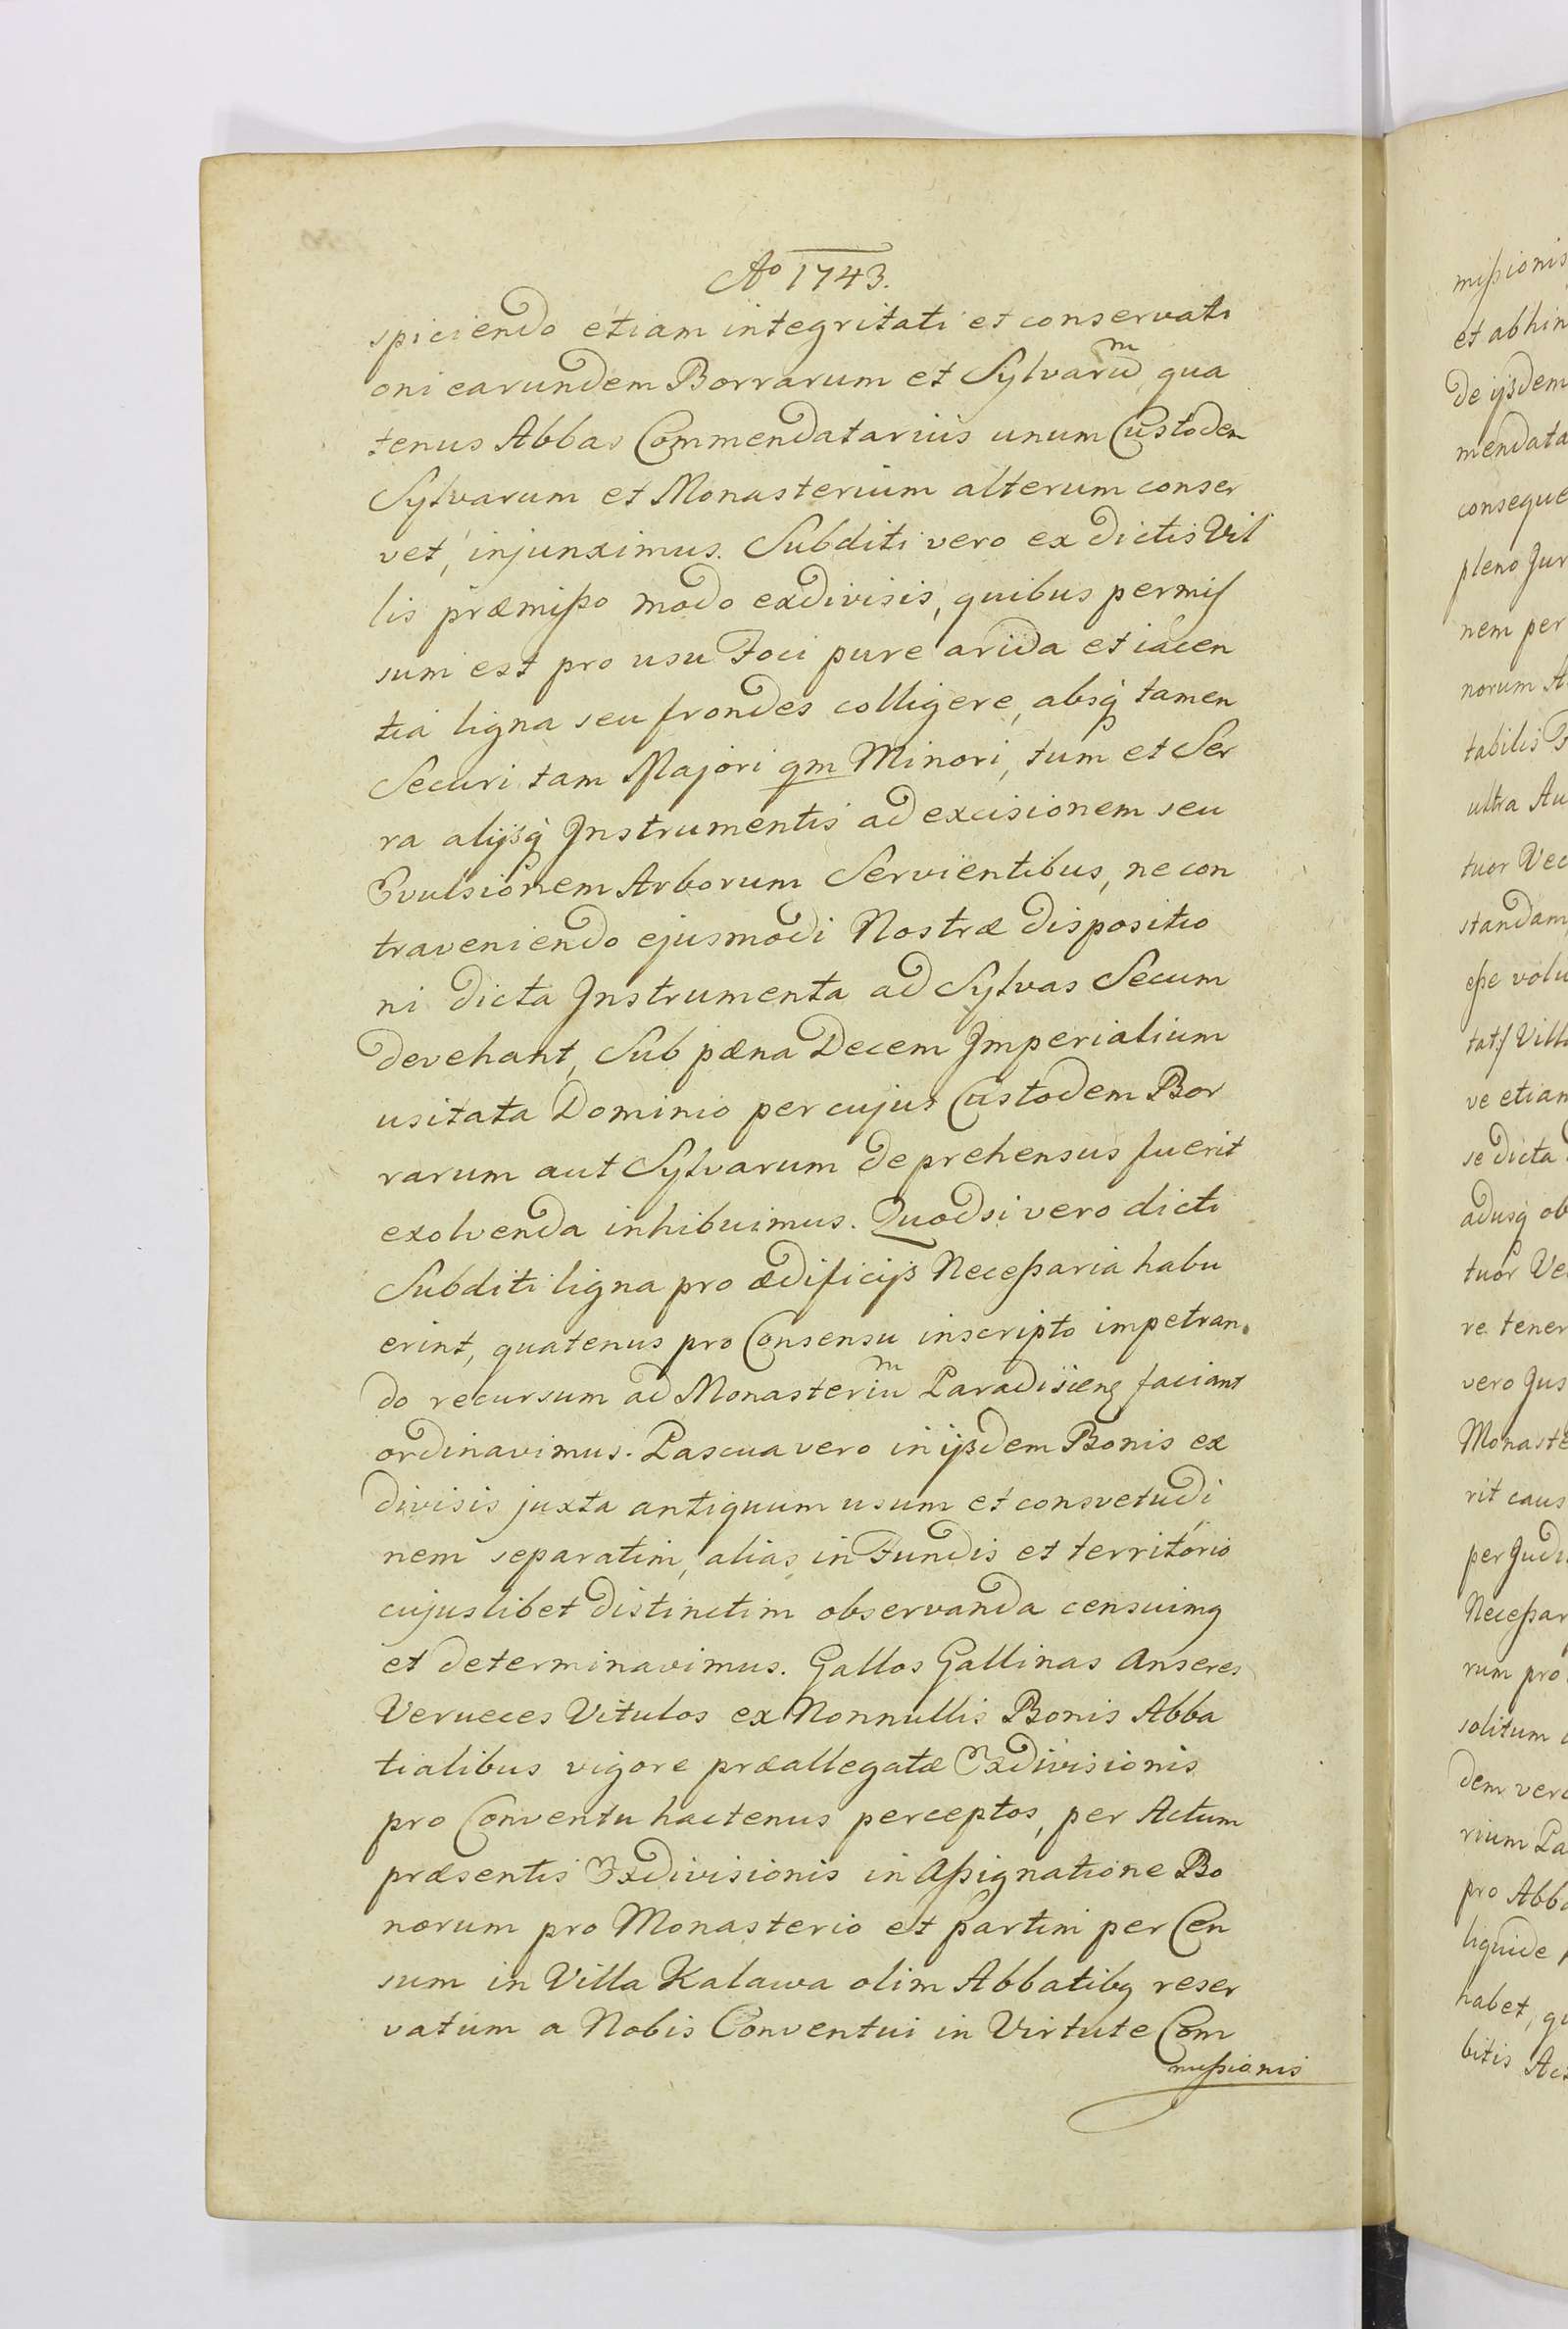 Ao 1743.
spiciendo etiam integritati et conservati
oni earundem Borrarum et Sylvarũm, qua
tenus Abbas Commendatarius unum Custodem
Sylvarum et Monasterium alterum conser
vet, injunximus. Subditi vero ex dictis Vil
lis præmißo modo exdivisis, quibus permis
sum est pro usu Foci pure arida et iacen
tia ligna seu frondes colligere, absq tamen
Securi tam Majori qm Minori, tum et Ser
ra alijsq Instrumentis ad excisionem seu
Evulsionem Arborum Servientibus, ne con
traveniendo ejusmodi Nostræ dispositio
ni dicta Instrumenta ad Sylvas Secum
devehant, Sub pæna Decem Imperialium
usitata Dominio per cujus Custodem Bor
rarum aut Sylvarum deprehensus fuerit
exolvenda inhibuimus. Quodsi vero dicti
Subditi ligna pro ædificijs Neceßaria habu
erint, quatenus pro Consensu inscripto impetran
do recursum ad Monasteriũm Paradisiens faciant
ordinavimus. Pascua vero in ijsdem Bonis ex
divisis juxta antiquum usum et consvetudi
nem separatim, alias in Fundis et territorio
cujuslibet distinctim observanda censuimq
et determinavimus. Gallos Gallinas Anseres
Verueces Vitulos ex Nonnullis Bonis Abba
tialibus vigore præallegatæ Exdivisionis
pro Conventu hactenus perceptos, per Actum
præsentis Exdivisionis in Aßignatione Bo
norum pro Monasterio et partim per Cen
sum in Villa Kalawa olim Abbatibq reser
vatum a Nobis Conventui in Virtute Com
mißionis
mißionis
et abhin
de ijsdem
mendata
conseque
pleno Jur
nem per
norum A
tabilis F
ultra Au
tuor Vec
standam
eße volu
tat/ Vill
ve etian
se dicta
adusq ob
tuor Ve
re tener
vero Jus
Monaste
rit caus
per Judi
Neceßar
rum pro
solitum
dem vero
rium Pa
pro Abba
liquide
habet, qu
bitis Act